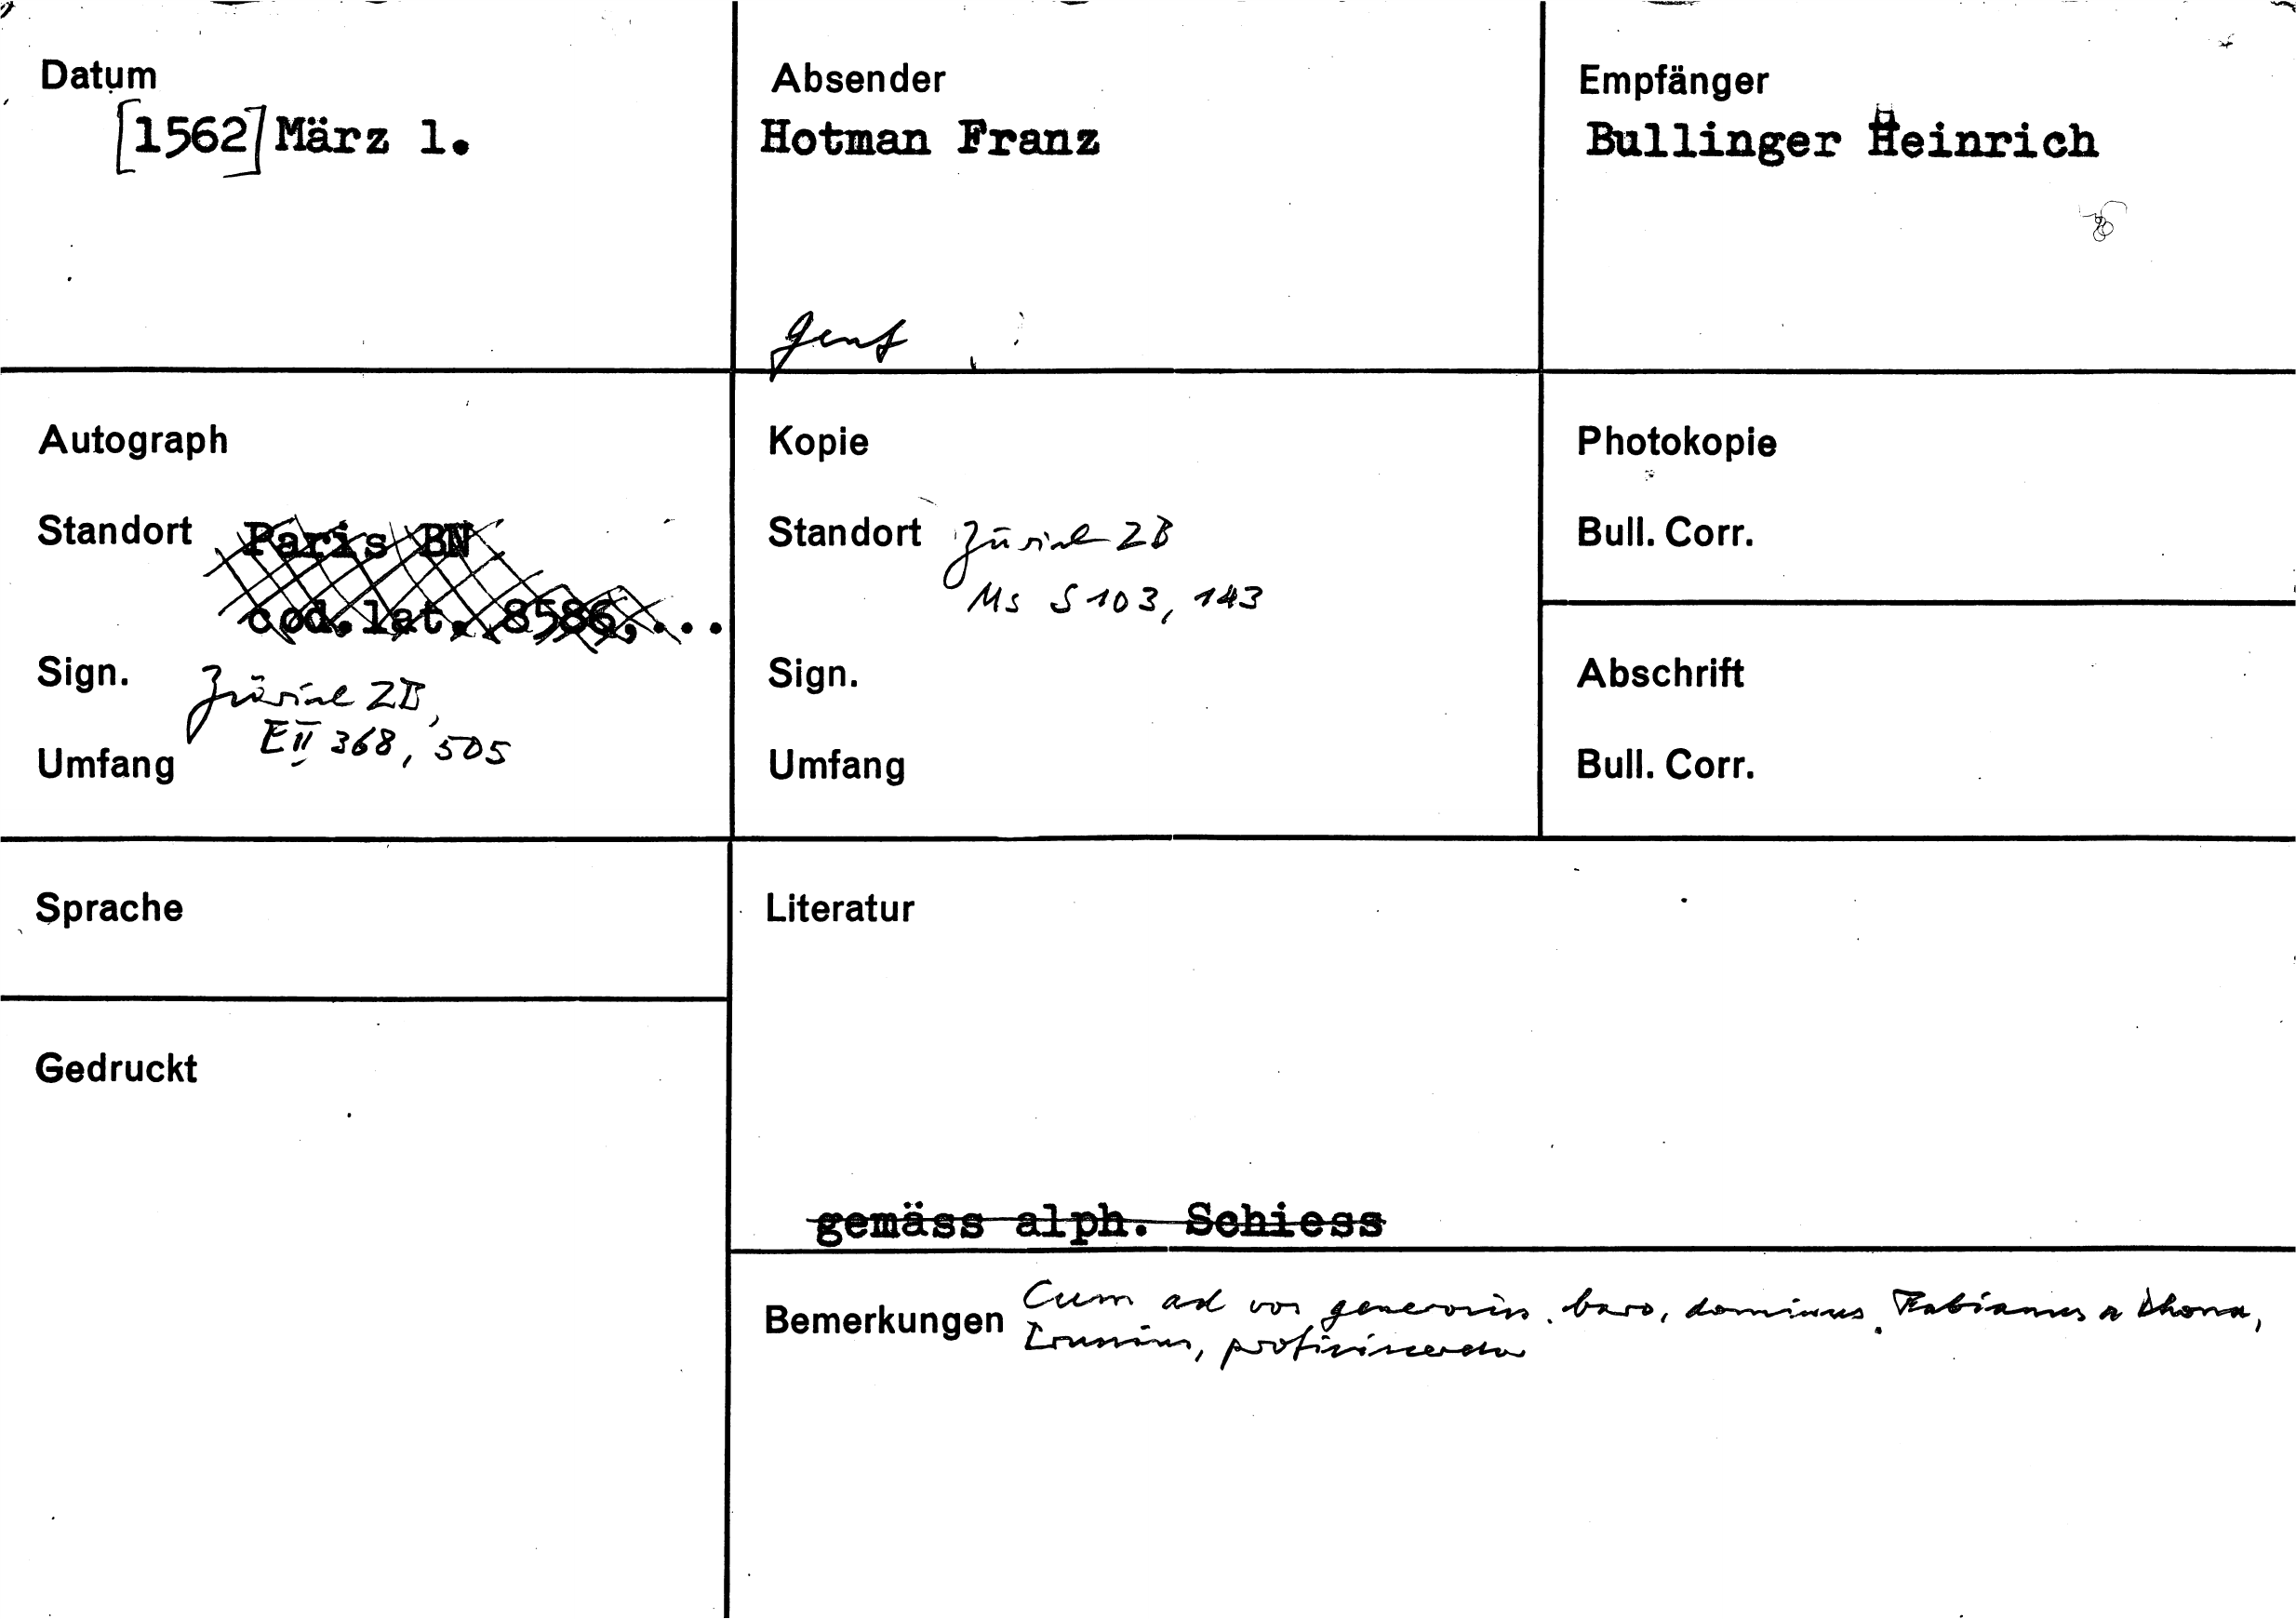 Datum
[1562] März 1.
Absender
Hotman Franz
Genf
Empfänger
Bullinger Heinrich
Autograph
Standort Paris BN
cod.lat. 8586,...
Sign. Zürich ZB,
E II 368, 505
Umfang
Kopie
Standort Zürich ZB
Ms S 103, 143
Sign.
Umfang
Photokopie
Bull. Corr.
Abschrift
Bull. Corr.
Sprache
Gedruckt
Literatur
gemäss alph. Schiess
Bemerkungen Cum ad vos generosus baro, dominus Fabianus a Dhona,